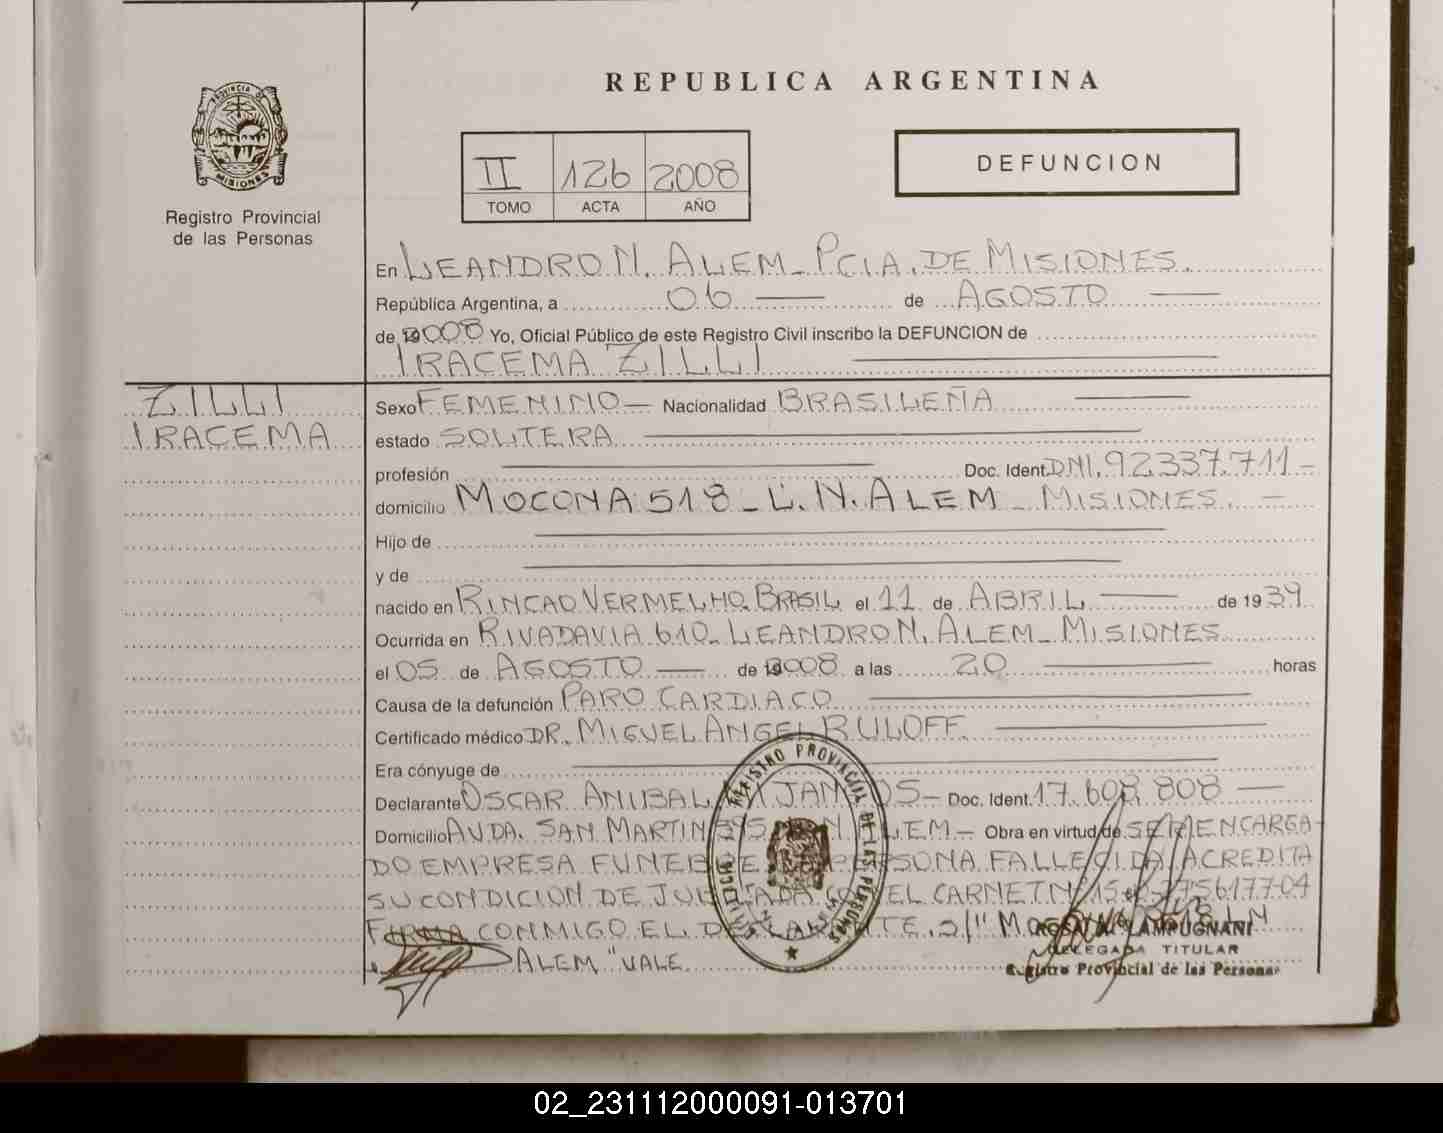 REPUBLICA ARGENTINA
PROVINCIA DE MISIONES
Registro Provincial
de las Personas
II 126 2008
TOMO ACTA AÑO
DEFUNCION
En LEANDRO N. ALEM - PCIA. DE MISIONES.
República Argentina, a 06 de AGOSTO
de 2008 Yo, Oficial Público de este Registro Civil inscribo la DEFUNCION de
IRACEMA ZILLI
ZILLI
IRACEMA
Sexo FEMENINO - Nacionalidad BRASILEÑA
estado SOLTERA
profesión Doc. Ident. DNI. 92.337.711 -
domicilio MOCONA 518 - L. N. ALEM - MISIONES. -
Hijo de
y de
nacido en RINCAO VERMELHO. BRASIL el 11 de ABRIL de 1939
Ocurrida en RIVADAVIA 610 - LEANDRO N. ALEM - MISIONES
el 05 de AGOSTO de 2008 a las 20 horas
Causa de la defunción PARO CARDIACO
Certificado médico DR. MIGUEL ANGEL RULOFF.
Era cónyuge de
Declarante OSCAR ANIBAL Doc. Ident. 17.608.808
Domicilio AVDA. SAN MARTIN 395 ALEM - Obra en virtud de SER ENCARGA-
DO EMPRESA FUNEBRE PERSONA FALLECIDA ACREDITA
SU CONDICION DE JUBILADA CON EL CARNET Nº 15
FIRMA CONMIGO EL DECLARANTE. s/ "MOCONA 518 L N
ALEM" VALE
REGISTRO PROVINCIAL DE LAS PERSONAS
ROSALIA LAMPUGNANI
DELEGADA TITULAR
Registro Provincial de las Personas
02_231112000091-013701